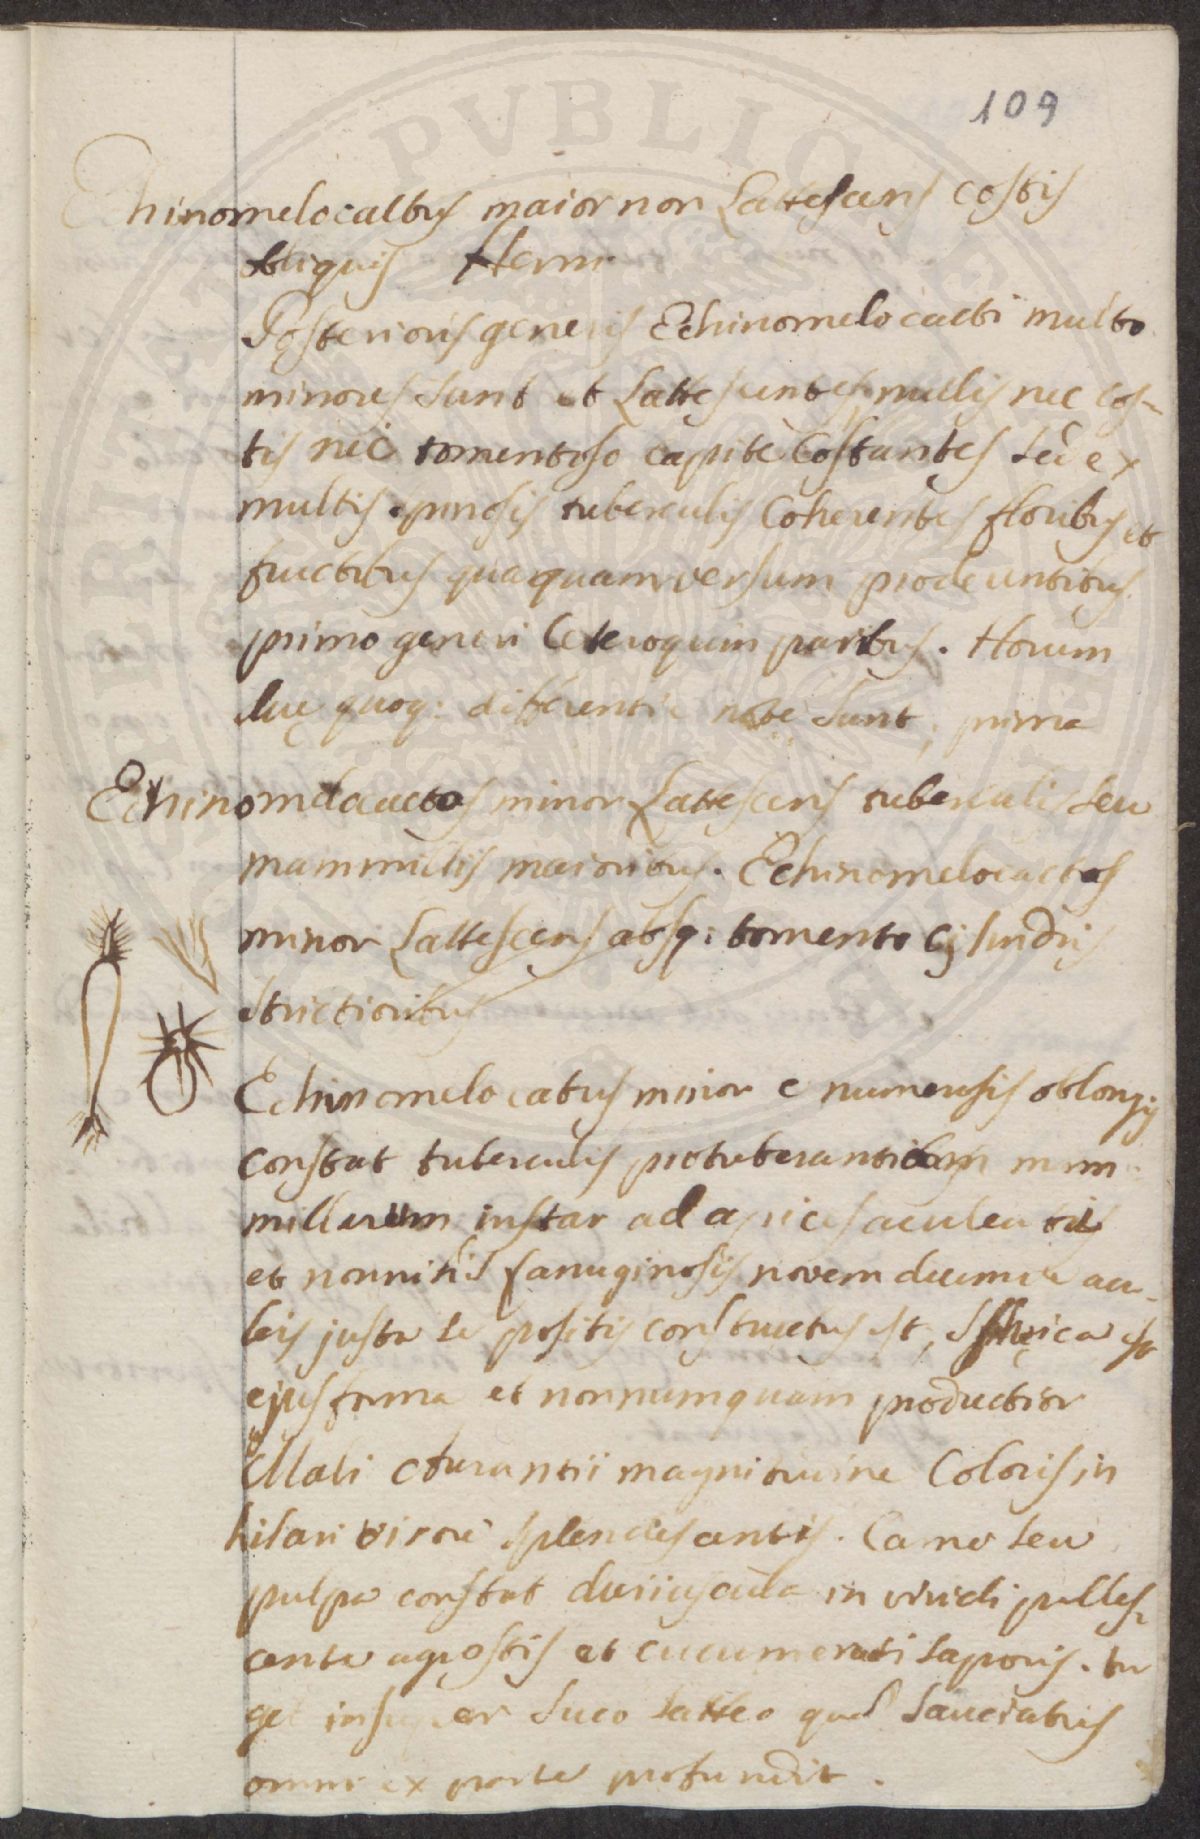 109
Echinomelocaltus maior non Lattescens costis
obliquis Herm
Posterioris generis Echinomelocacti multo
minores sunt et Lattescentes, nullis nec cos-
tis nec tomentoso capite Costantes sed ex
multis spinosis tuberculis Coherentes floribus et
fructibus quaquamversum prodeuntibus
primo generi Ceteroquin paribus. Horum
due quoq: differentie note sunt, prima
Echinomelocactos minor Lattescens tuberculis seu
mammillis maioribus. Echinomelocactos
minor Lattescens absq: tomento Cylindris
strictioribus
Echinomelocatus minor e numerosis oblongis
constat tuberculis protuberantibus mam
millarum instar ad apices aculeatis
et nonnihil lanuginosis novem decemve acu-
leis juxta se positis constructus est, Spherica est
ejus forma et nonnumquam productior
Mali Aurantii magnitudine Coloris in
hilari virore splendescentis. Carne seu
pulpa constat duriuscula in viridi palles-
cente agrostis et cucumeracei saporis. tur
get insuper suco latteo quod sauciatus
omni ex parte profundit.